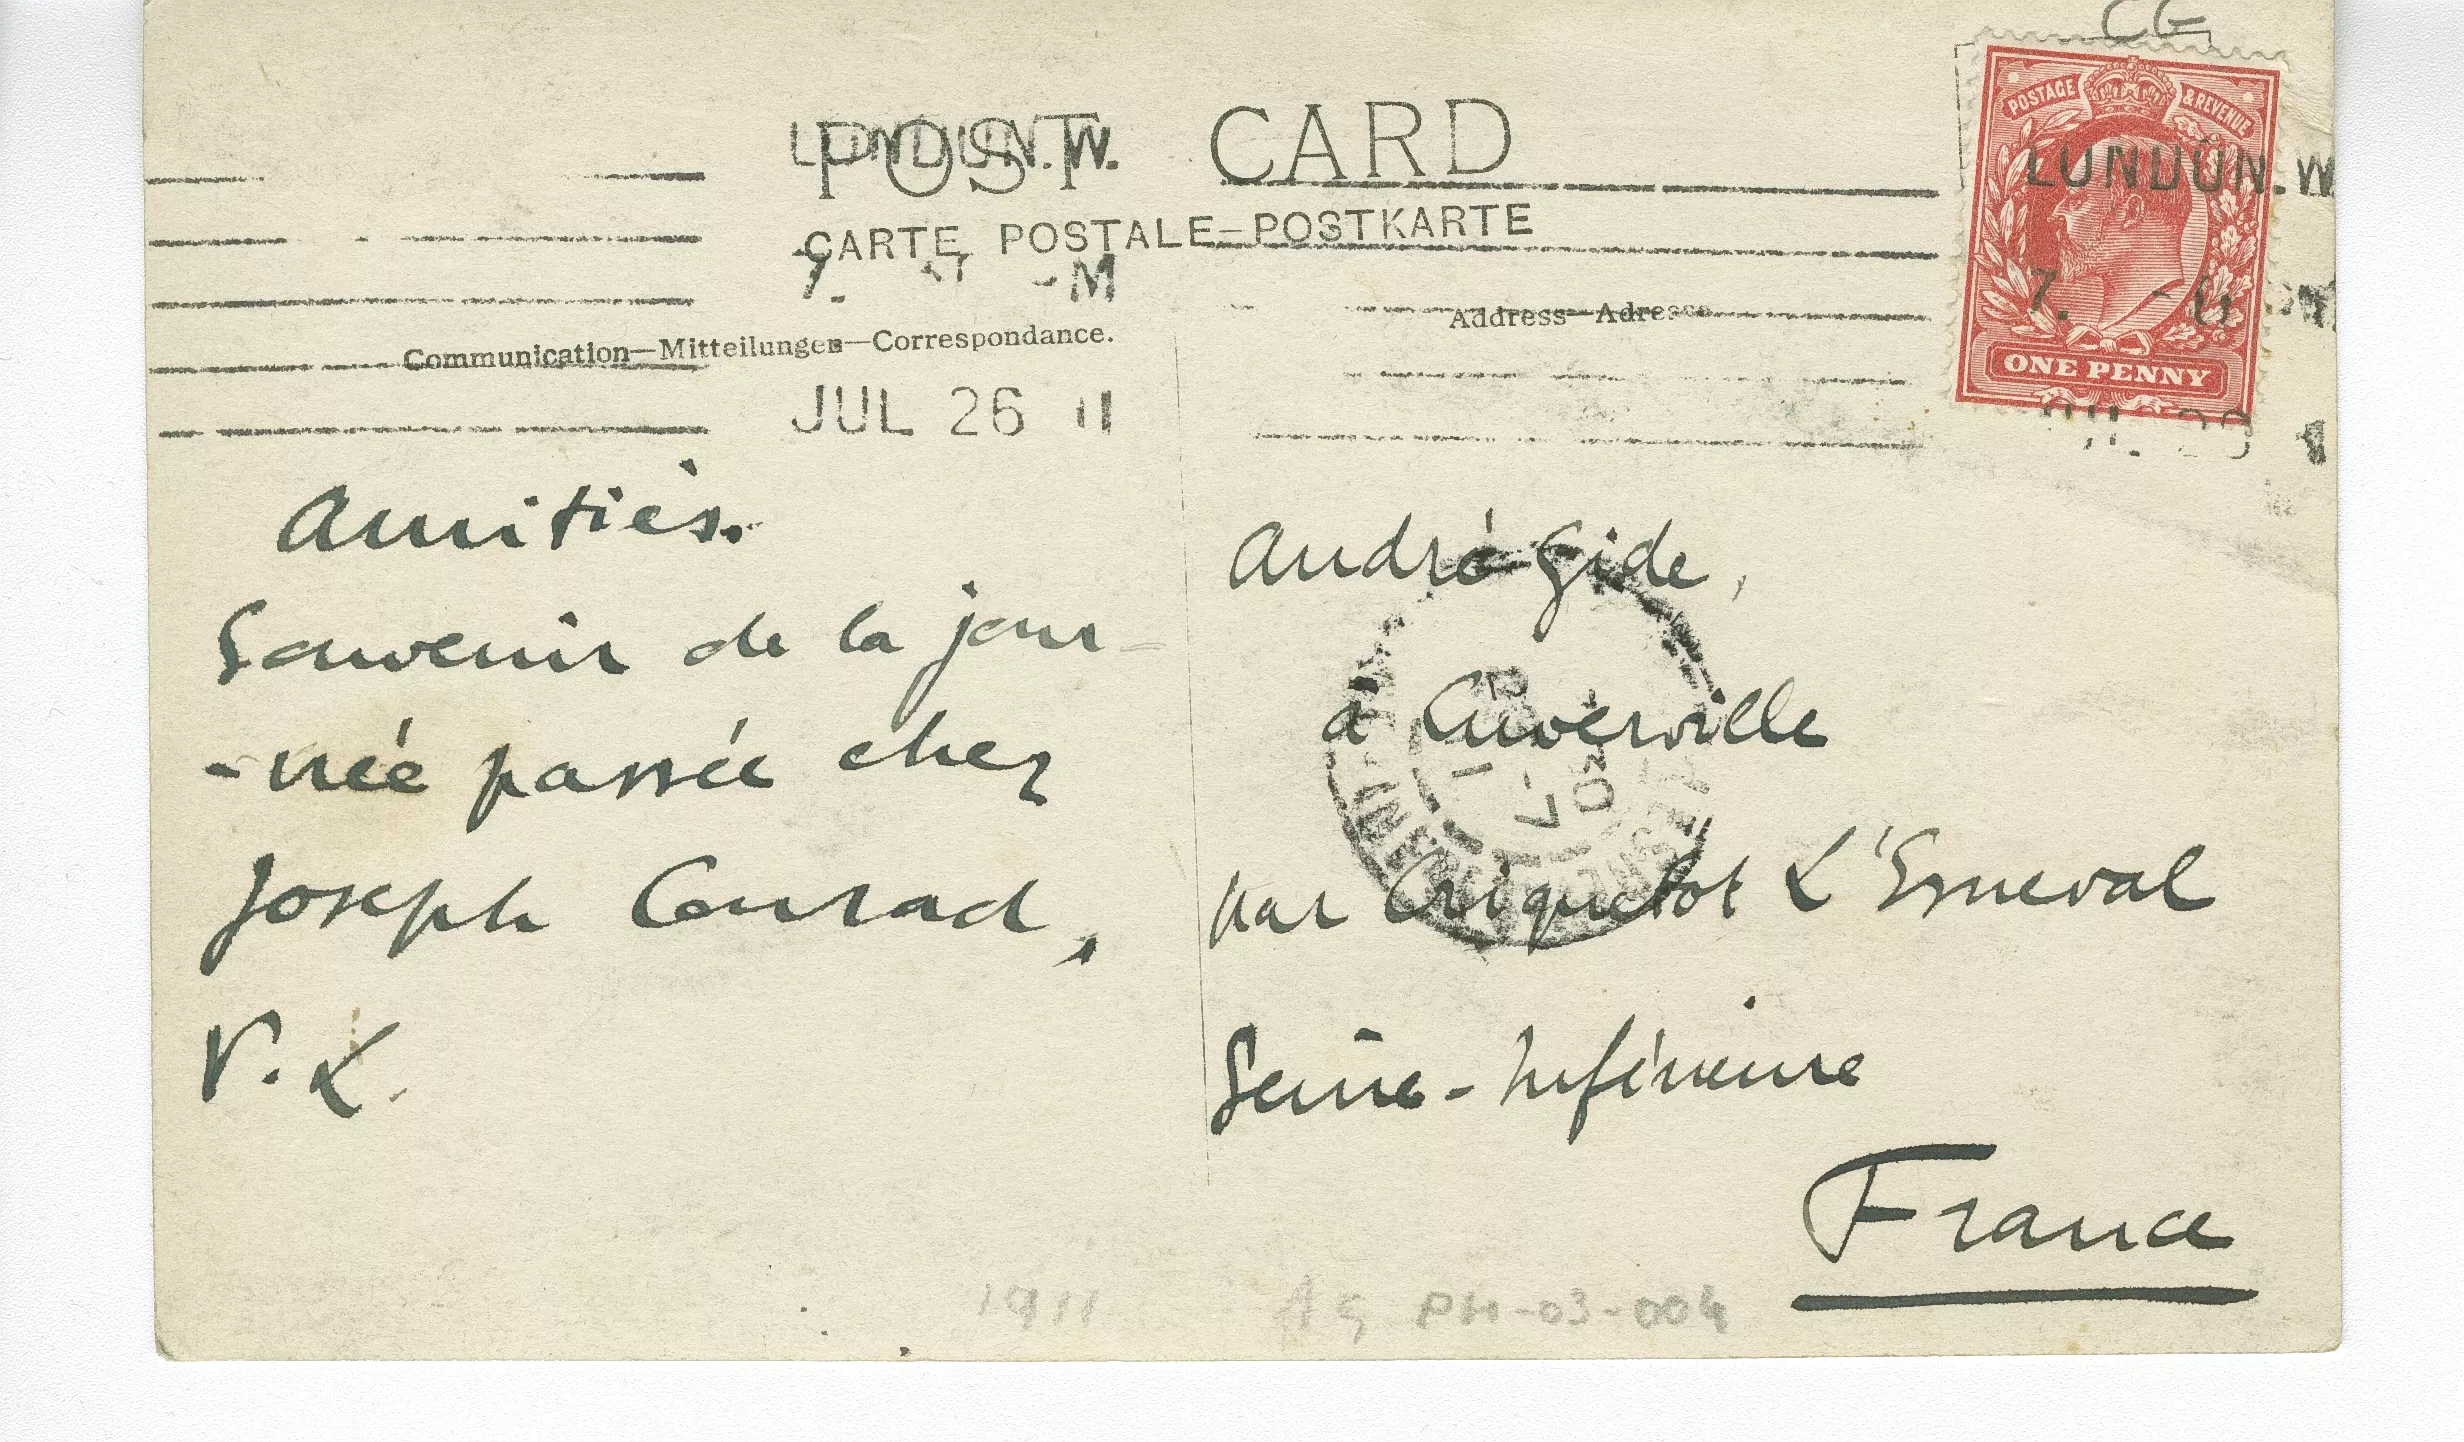 CG
POST CARD
LONDON.W.
CARTE POSTALE—POSTKARTE
7. -M
Communication—Mitteilungen—Correspondance.
JUL 26 11
Address—Adresse
POSTAGE & REVENUE
LONDON.W
7.
ONE PENNY
Amitiés.
Souvenir de la jour-
-née passée chez
Joseph Conrad,
V. L.
André Gide,
à Cuverville
par Criquetot L'Esneval
Seine-Inférieure
France
1911
AG PH-03-004